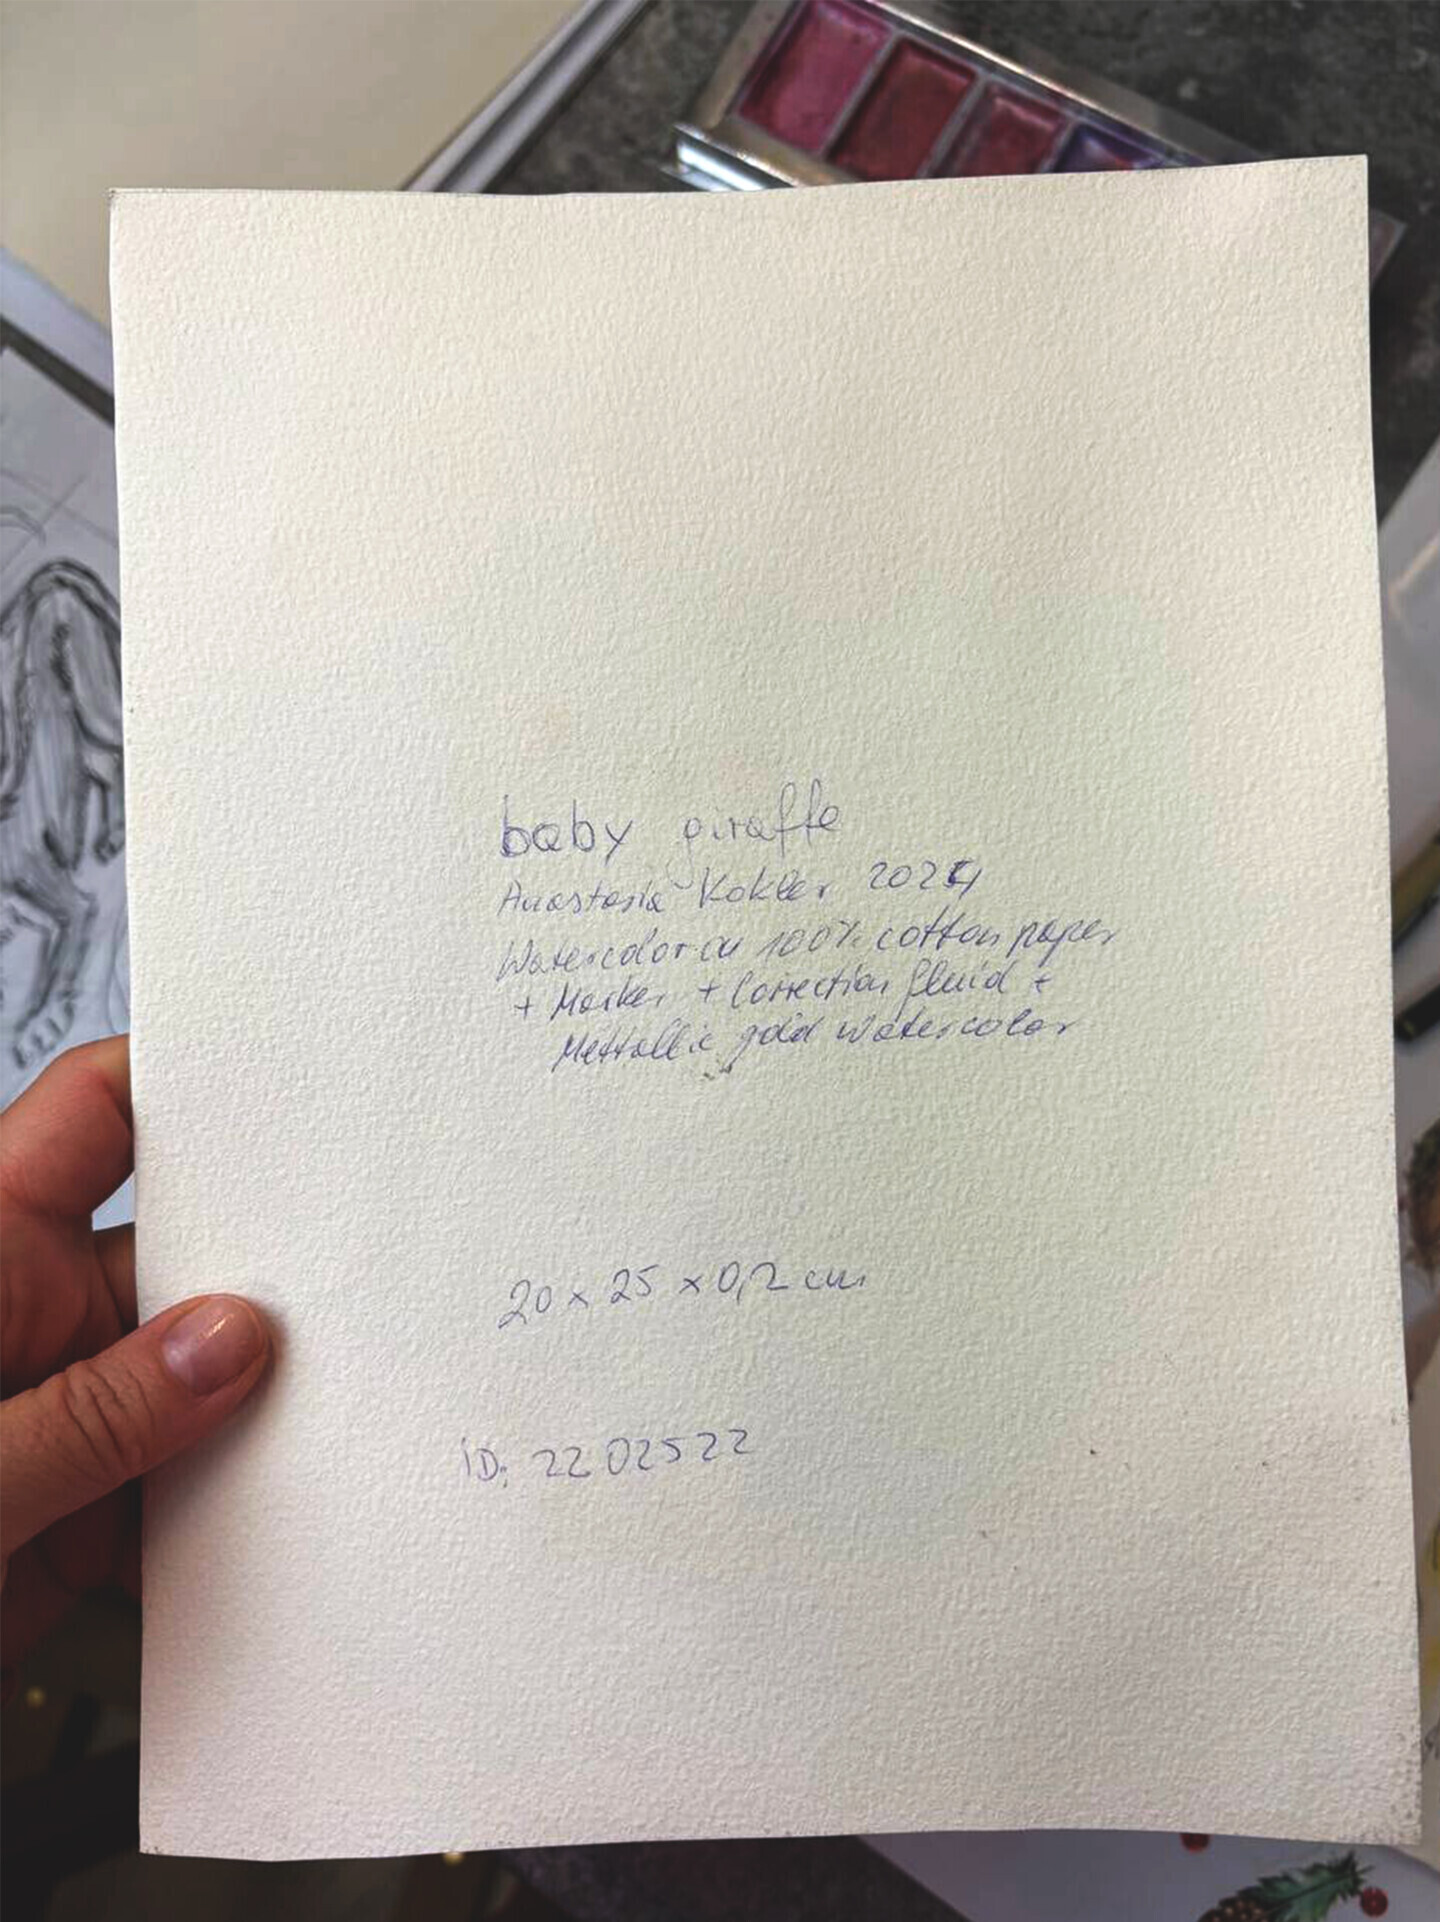 baby giraffe
Anastasia Kokler 2024
Watercolor on 100% cotton paper
+ Marker + Correction fluid +
Mettallic gold watercolor
20 x 25 x 0,2 cm
ID: 2202522